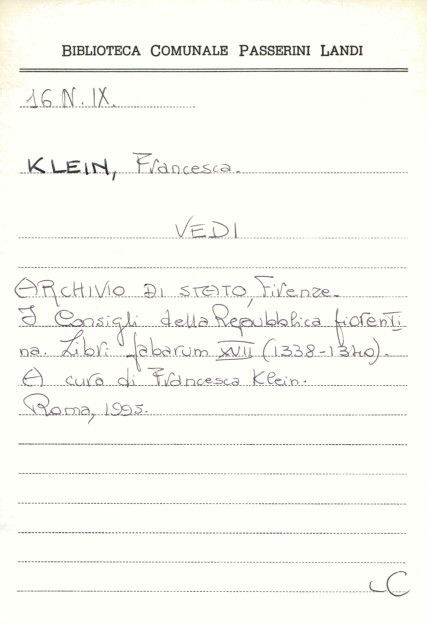 BIBLIOTECA COMUNALE PASSERINI LANDI
16 N. IX.
KLEIN, Francesca.
VEDI
ARCHIVIO DI STATO, Firenze.
I Consigli della Repubblica fiorenti
na. Libri fabarum XVII (1338-1340).
A cura di Francesca Klein.
Roma, 1995.